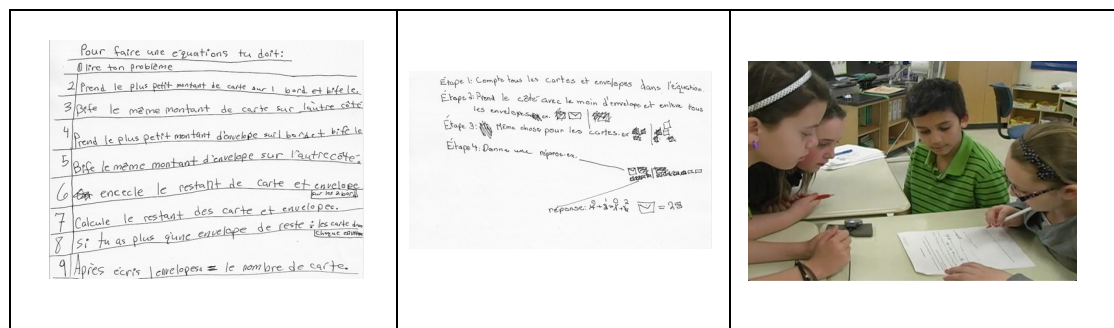 Pour faire une équations tu doit:
① lire ton problème
2 Prend le plus petit montant de carte sur 1 bord et bife le.
3 Bife le même montant de carte sur l'autre côté
4 Prend le plus petit montant d'envelope sur 1 bord et bife le
5 Bife le même montant d'envelope sur l'autre côté.
6 encecle le restant de carte et envelope
sur les 2 bord
7 Calcule le restant des carte et envelope.
8 Si tu as plus q'une envelope de reste : les carte dans
chaque
9 Après écris 1 envelopes = le nombre de carte.
Étape 1: Compte tous les cartes et envelopes dans l'équation.
Étape 2: Prend le côté avec le moin d'envelope et enlève tous
les envelopes ex.
Étape 3: Même chose pour les cartes. ex
Étape 4: Donne une réponse ex.
réponse: = 28